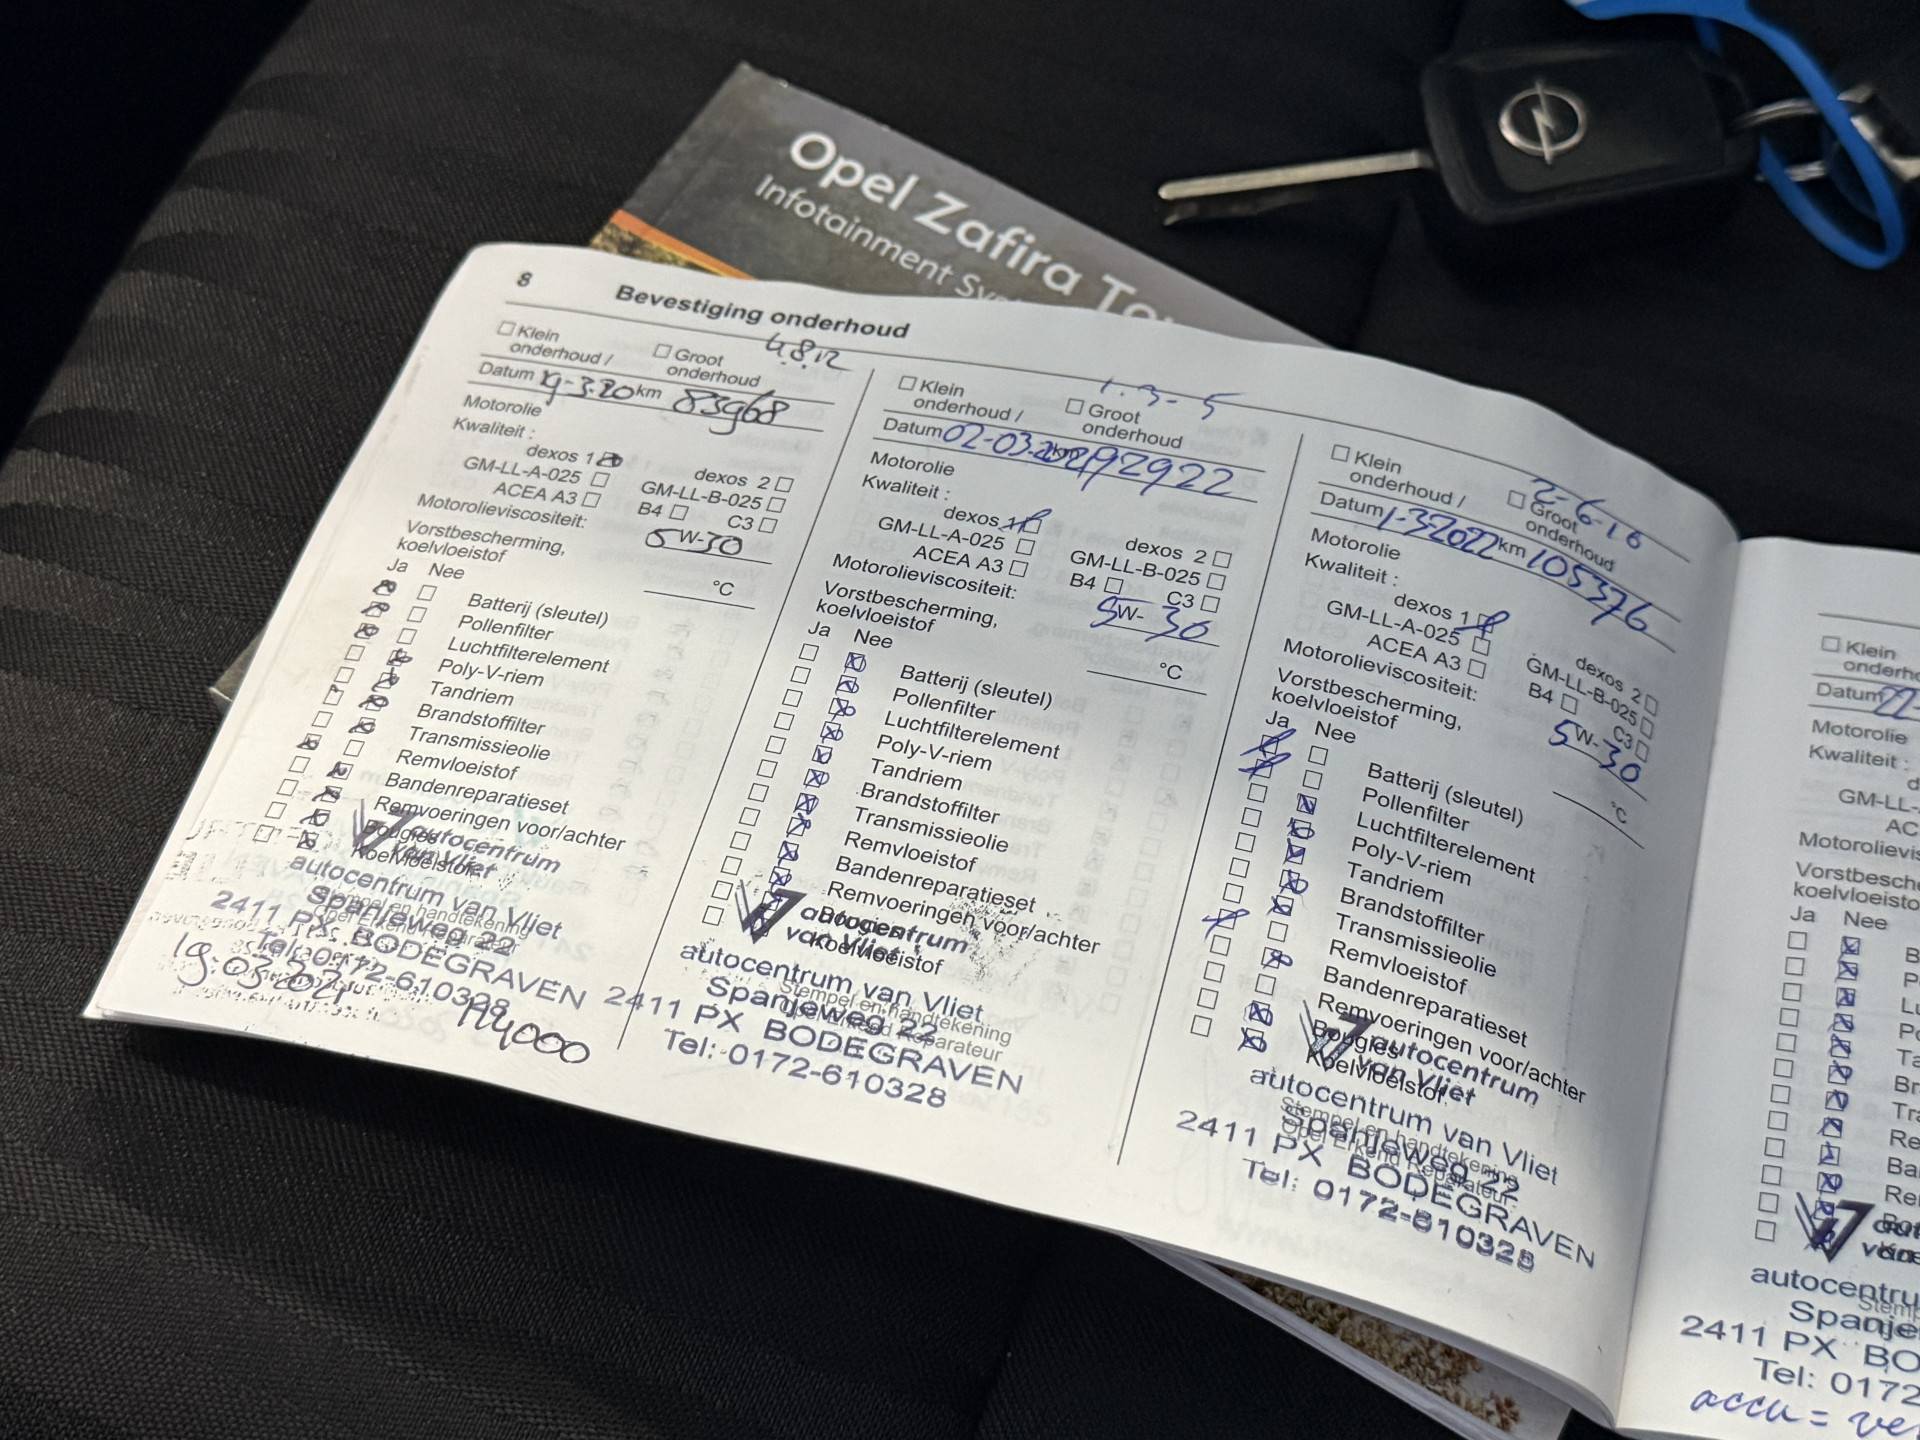 Opel Zafira To
Infotainment Sys
8 Bevestiging onderhoud
Klein onderhoud /
Groot onderhoud
4.8.12
Datum 19-3-20 km 83968
Motorolie
Kwaliteit :
dexos 1
dexos 2
GM-LL-A-025
GM-LL-B-025
ACEA A3
B4
C3
Motorolieviscositeit:
5W-30
Vorstbescherming,
koelvloeistof
°C
Ja Nee
Batterij (sleutel)
Pollenfilter
Luchtfilterelement
Poly-V-riem
Tandriem
Brandstoffilter
Transmissieolie
Remvloeistof
Bandenreparatieset
Remvoeringen voor/achter
Bougies
Koelvloeistof
autocentrum
van Vliet
autocentrum van Vliet
Spanjeweg 22
2411 PX BODEGRAVEN
Tel: 0172-610328
19.03.2021
114000
Klein onderhoud /
Groot onderhoud
1.3-5
Datum 02-03-2021 km 92922
Motorolie
Kwaliteit :
dexos 1
dexos 2
GM-LL-A-025
GM-LL-B-025
ACEA A3
B4
C3
Motorolieviscositeit:
5W-30
Vorstbescherming,
koelvloeistof
°C
Ja Nee
Batterij (sleutel)
Pollenfilter
Luchtfilterelement
Poly-V-riem
Tandriem
Brandstoffilter
Transmissieolie
Remvloeistof
Bandenreparatieset
Remvoeringen voor/achter
Bougies
Koelvloeistof
autocentrum
van Vliet
Stempel en handtekening
Opel Erkend Reparateur
autocentrum van Vliet
Spanjeweg 22
2411 PX BODEGRAVEN
Tel: 0172-610328
Klein onderhoud /
Groot onderhoud
2-6-16
Datum 1-3-2022 km 105376
Motorolie
Kwaliteit :
dexos 1
dexos 2
GM-LL-A-025
GM-LL-B-025
ACEA A3
B4
C3
Motorolieviscositeit:
5W-30
Vorstbescherming,
koelvloeistof
°C
Ja Nee
Batterij (sleutel)
Pollenfilter
Luchtfilterelement
Poly-V-riem
Tandriem
Brandstoffilter
Transmissieolie
Remvloeistof
Bandenreparatieset
Remvoeringen voor/achter
Bougies
Koelvloeistof
autocentrum
van Vliet
Stempel en handtekening
Opel Erkend Reparateur
autocentrum van Vliet
Spanjeweg 22
2411 PX BODEGRAVEN
Tel: 0172-610328
Klein
onderho
Datum 22-
Motorolie
Kwaliteit :
d
GM-LL-
AC
Motorolievis
Vorstbesche
koelvloeisto
Ja Nee
B
Po
Lu
Po
Ta
Br
Tra
Re
Ba
Re
autocentru
Spanje
2411 PX BO
Tel: 0172
accu = ve